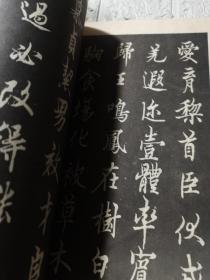 愛育黎首臣伏戎
羌遐迩壹體率賓
歸王鳴鳳在樹白
駒食場化被草木
貞絜男效才
過必改得能